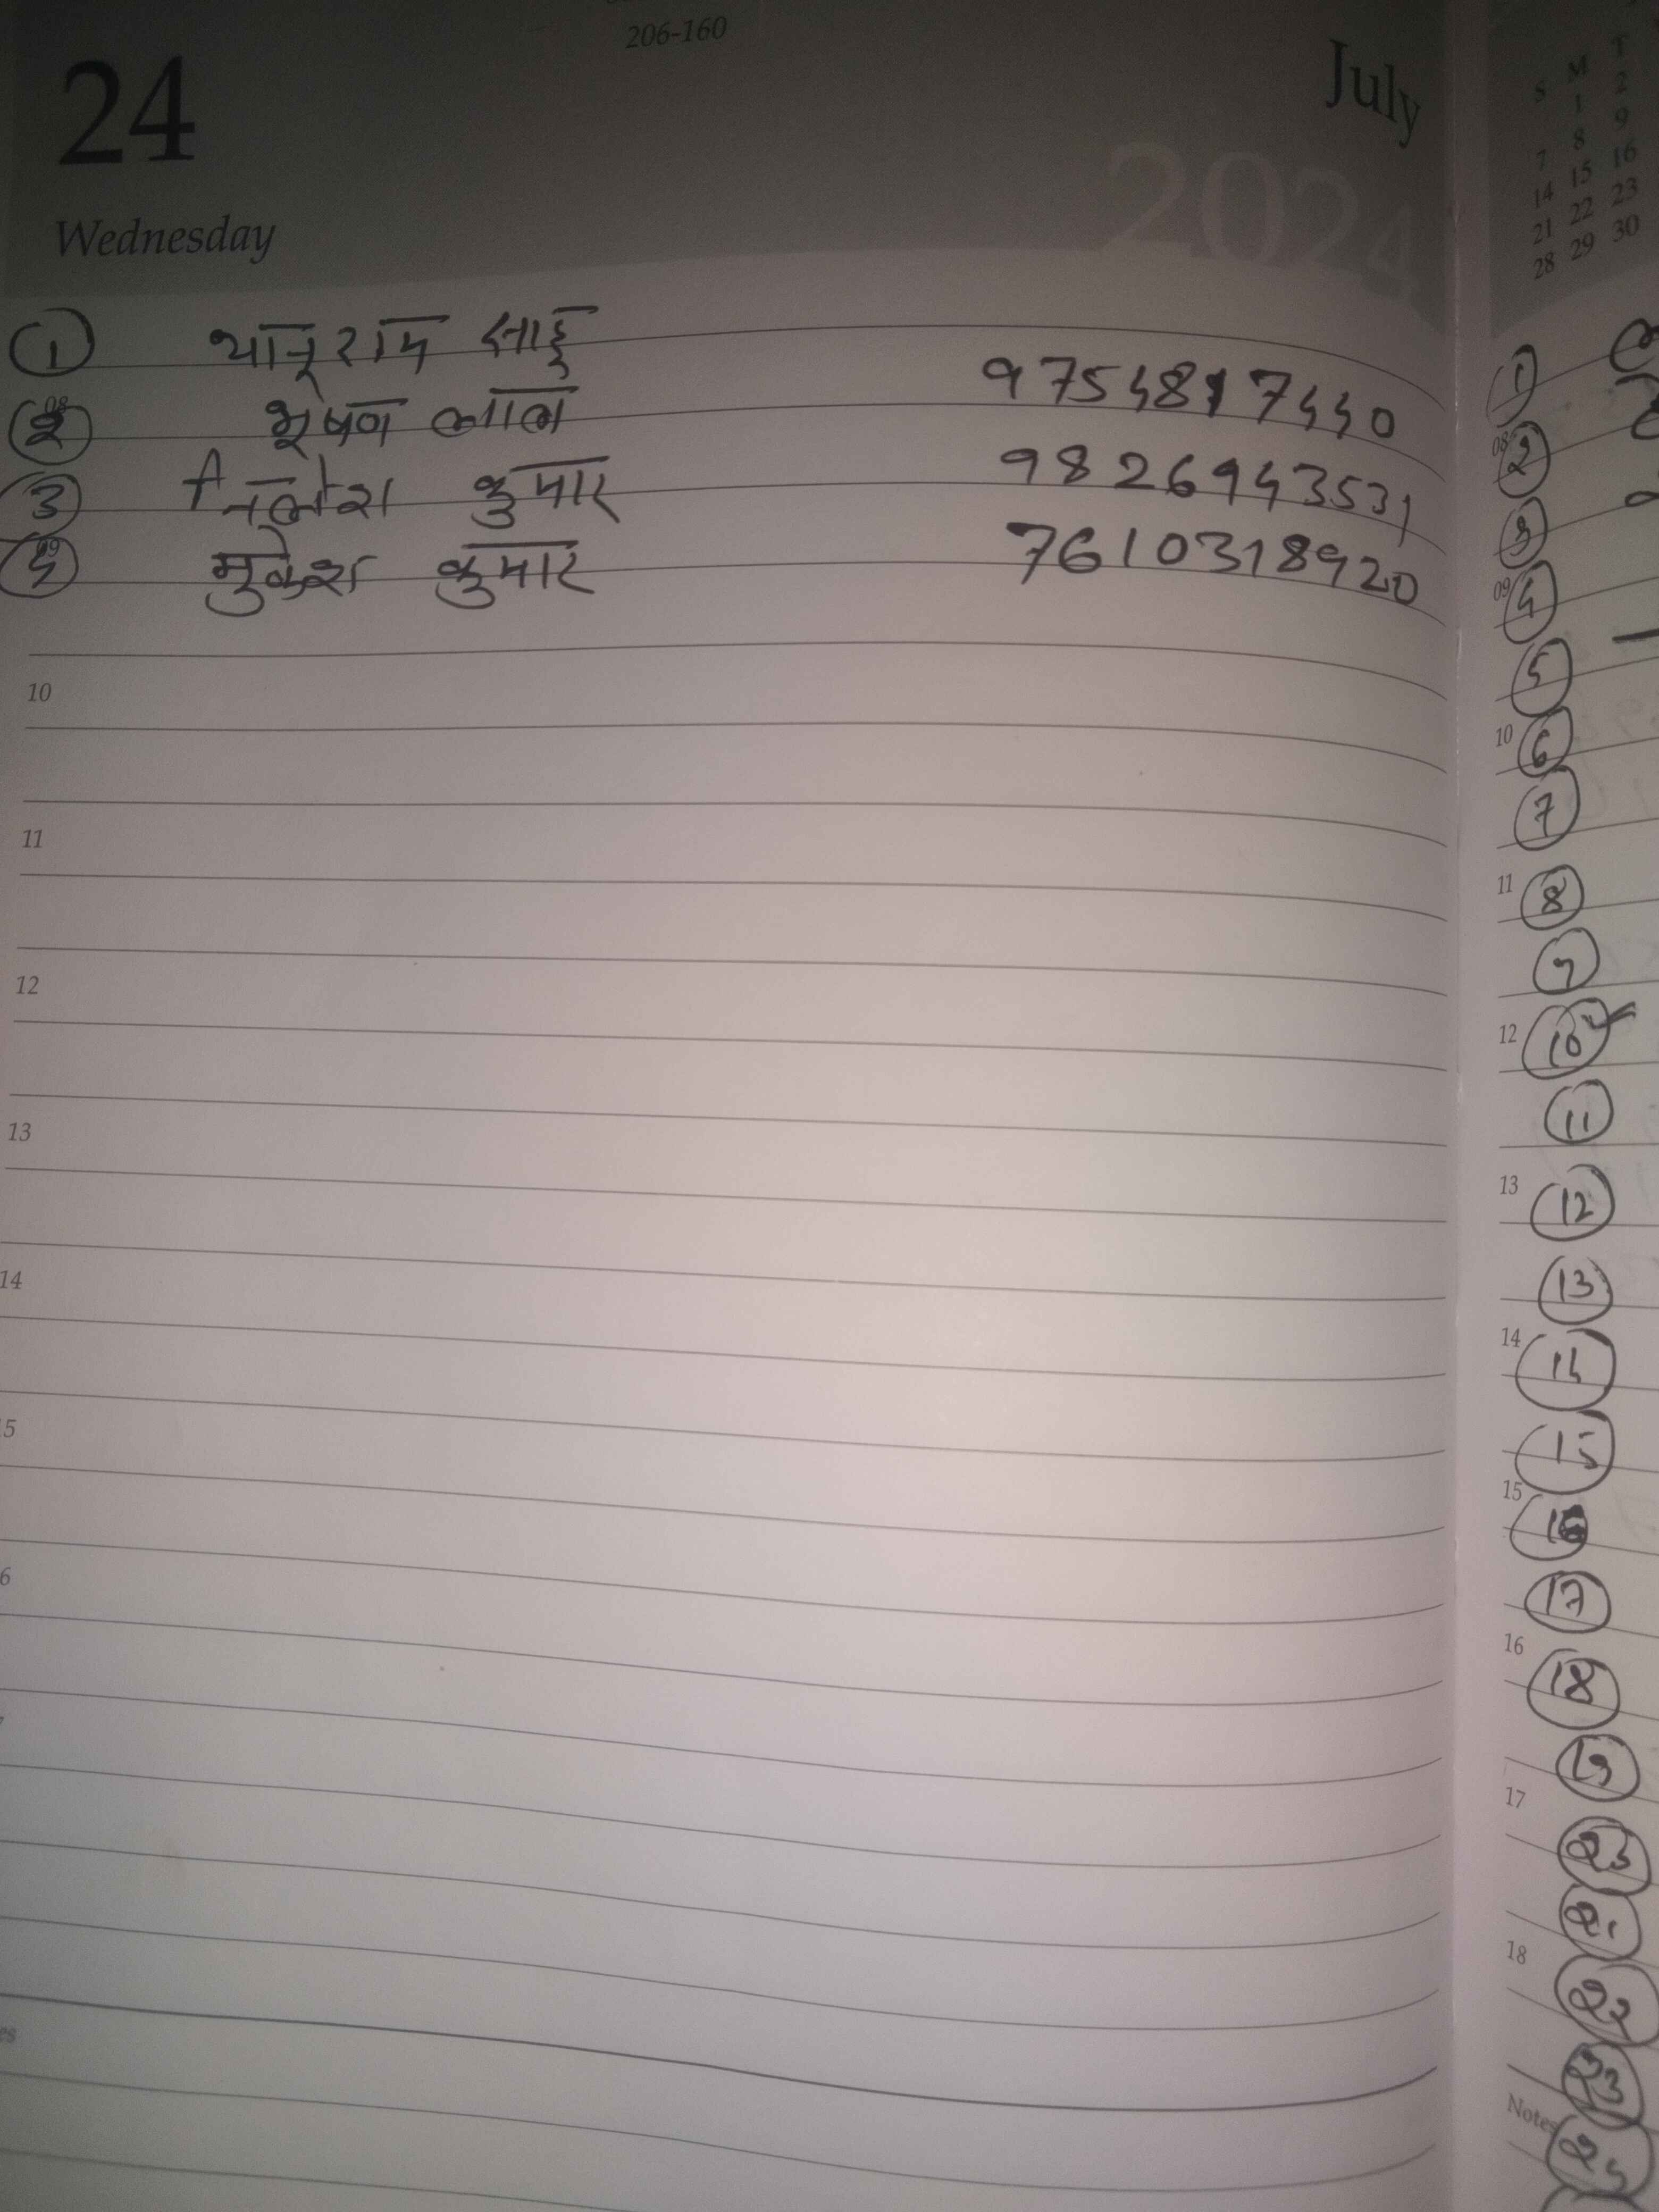 206-160
24
July
2024
Wednesday
① थानू राम साहू
② भूषण लाल 9754817440
③ निलेश कुमार 9826943531
④ मुकेश कुमार 7610318920
10
11
12
13
14
S M T
1 2
7 8 9
14 15 16
21 22 23
28 29 30
①
08 ②
③
09 ④
⑤
10 ⑥
⑦
11 ⑧
⑨
12 ⑩
⑪
13 ⑫
⑬
14 ⑭
⑮
15 ⑯
⑰
16 ⑱
⑲
17
18
Notes